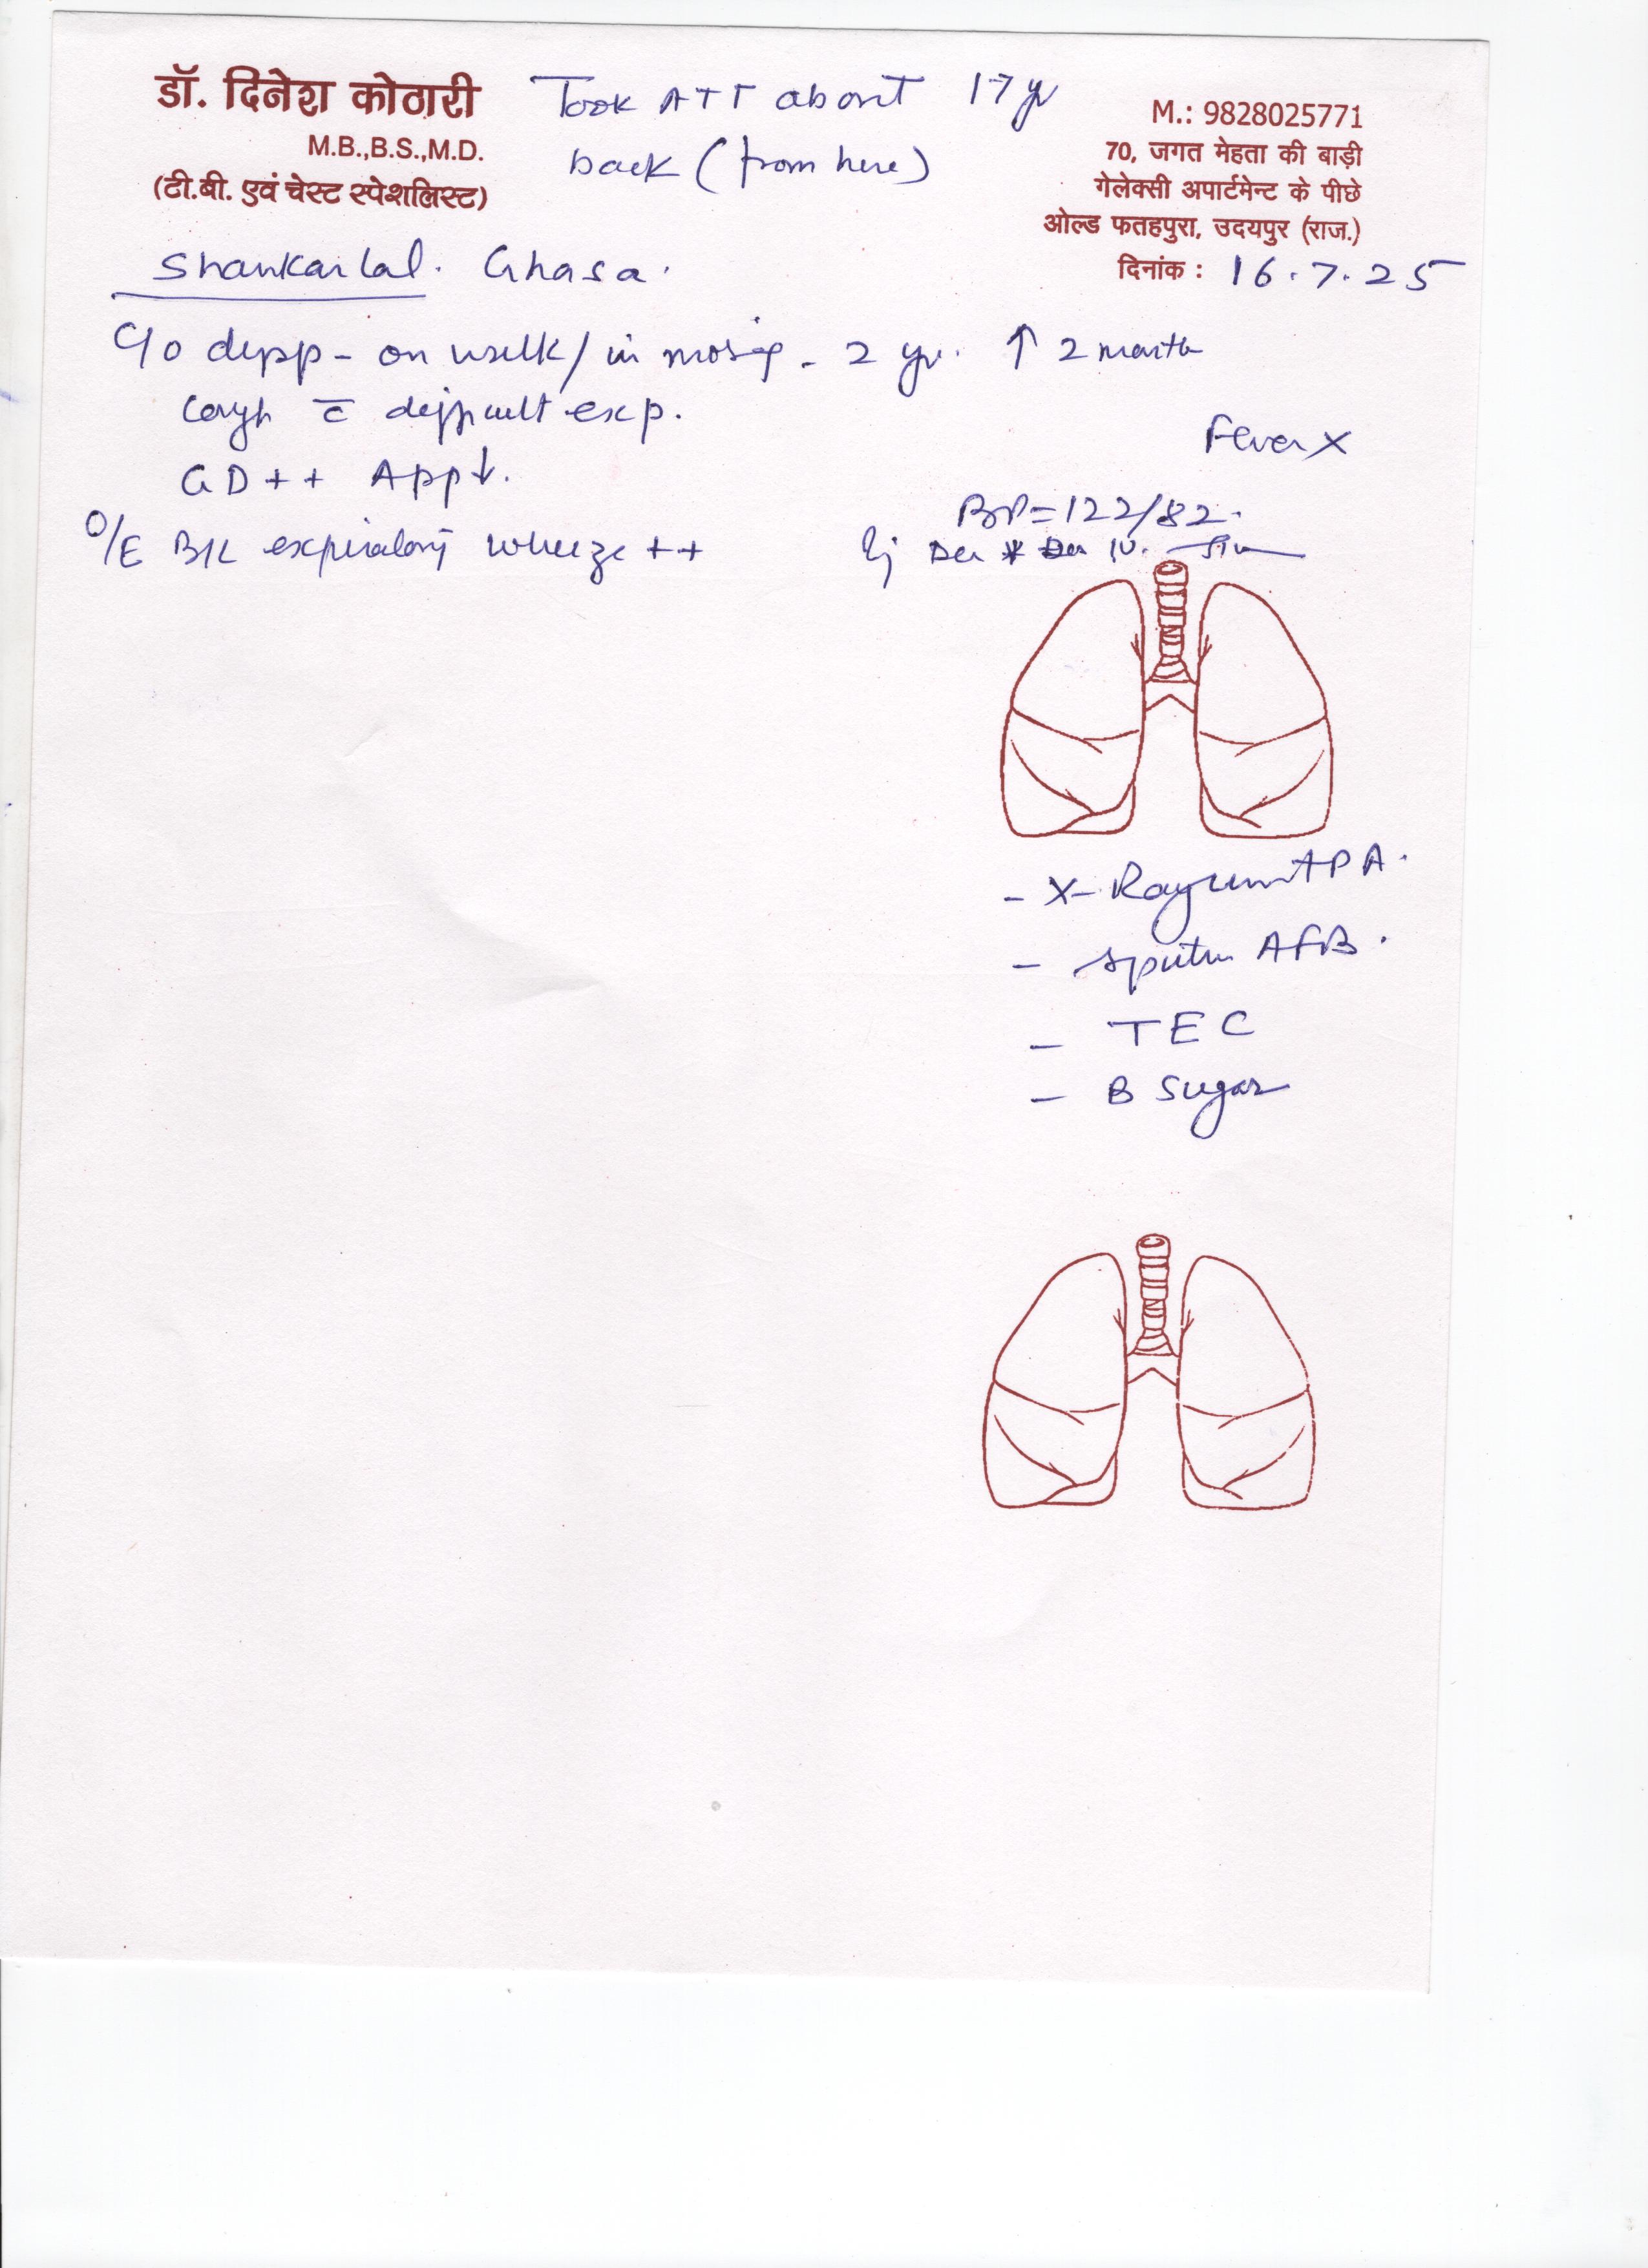 डॉ. दिनेश कोठारी
M.B.,B.S.,M.D.
(टी.बी. एवं चेस्ट स्पेशलिस्ट)
Took ATT about 17 yr
back (from here)
M.: 9828025771
70, जगत मेहता की बाड़ी
गेलेक्सी अपार्टमेन्ट के पीछे
ओल्ड फतहपुरा, उदयपुर (राज.)
दिनांक : 16.7.25
Shankarlal. Ghasa.
C/o dypp - on walk / in - 2 yr. ↑ 2 month
Cough c̄ difficult exp.
Fever X
GD++ App↓.
BP=122/82.
O/E B/L expiratory wheeze ++
Inj IV.
- X-Ray chest PA.
- Sputum AFB.
- TEC
- B Sugar